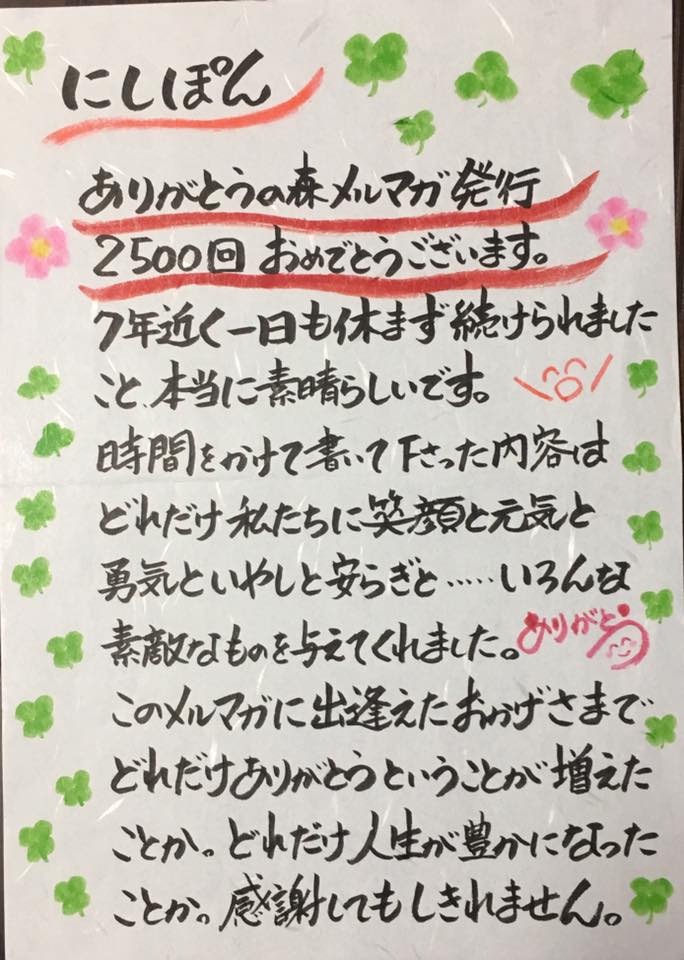 にしぽん
ありがとうの森メルマガ発行
2500回 おめでとうございます。
7年近く一日も休まず続けられました
こと、本当に素晴らしいです。
時間をかけて書いて下さった内容は
どれだけ私たちに笑顔と元気と
勇気といやしと安らぎと……いろんな
素敵なものを与えてくれました。ありがとう
このメルマガに出逢えたおかげさまで
どれだけありがとうということが増えた
ことか。どれだけ人生が豊かになった
ことか。感謝してもしきれません。